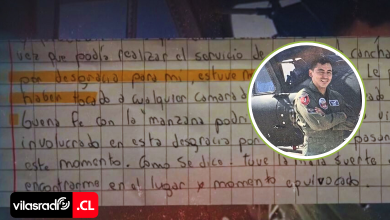 vez que podía realizar el servicio de cancha
por desgracia para mi, estuve
haber tocado a cualquier camarada
buena fe con la "manzana podri
involucrado en esta desgracia por pasan
este momento. Como se dice, tuve la mala suerte
encontrarme en el lugar y momento equivocado.
vilasradio.CL